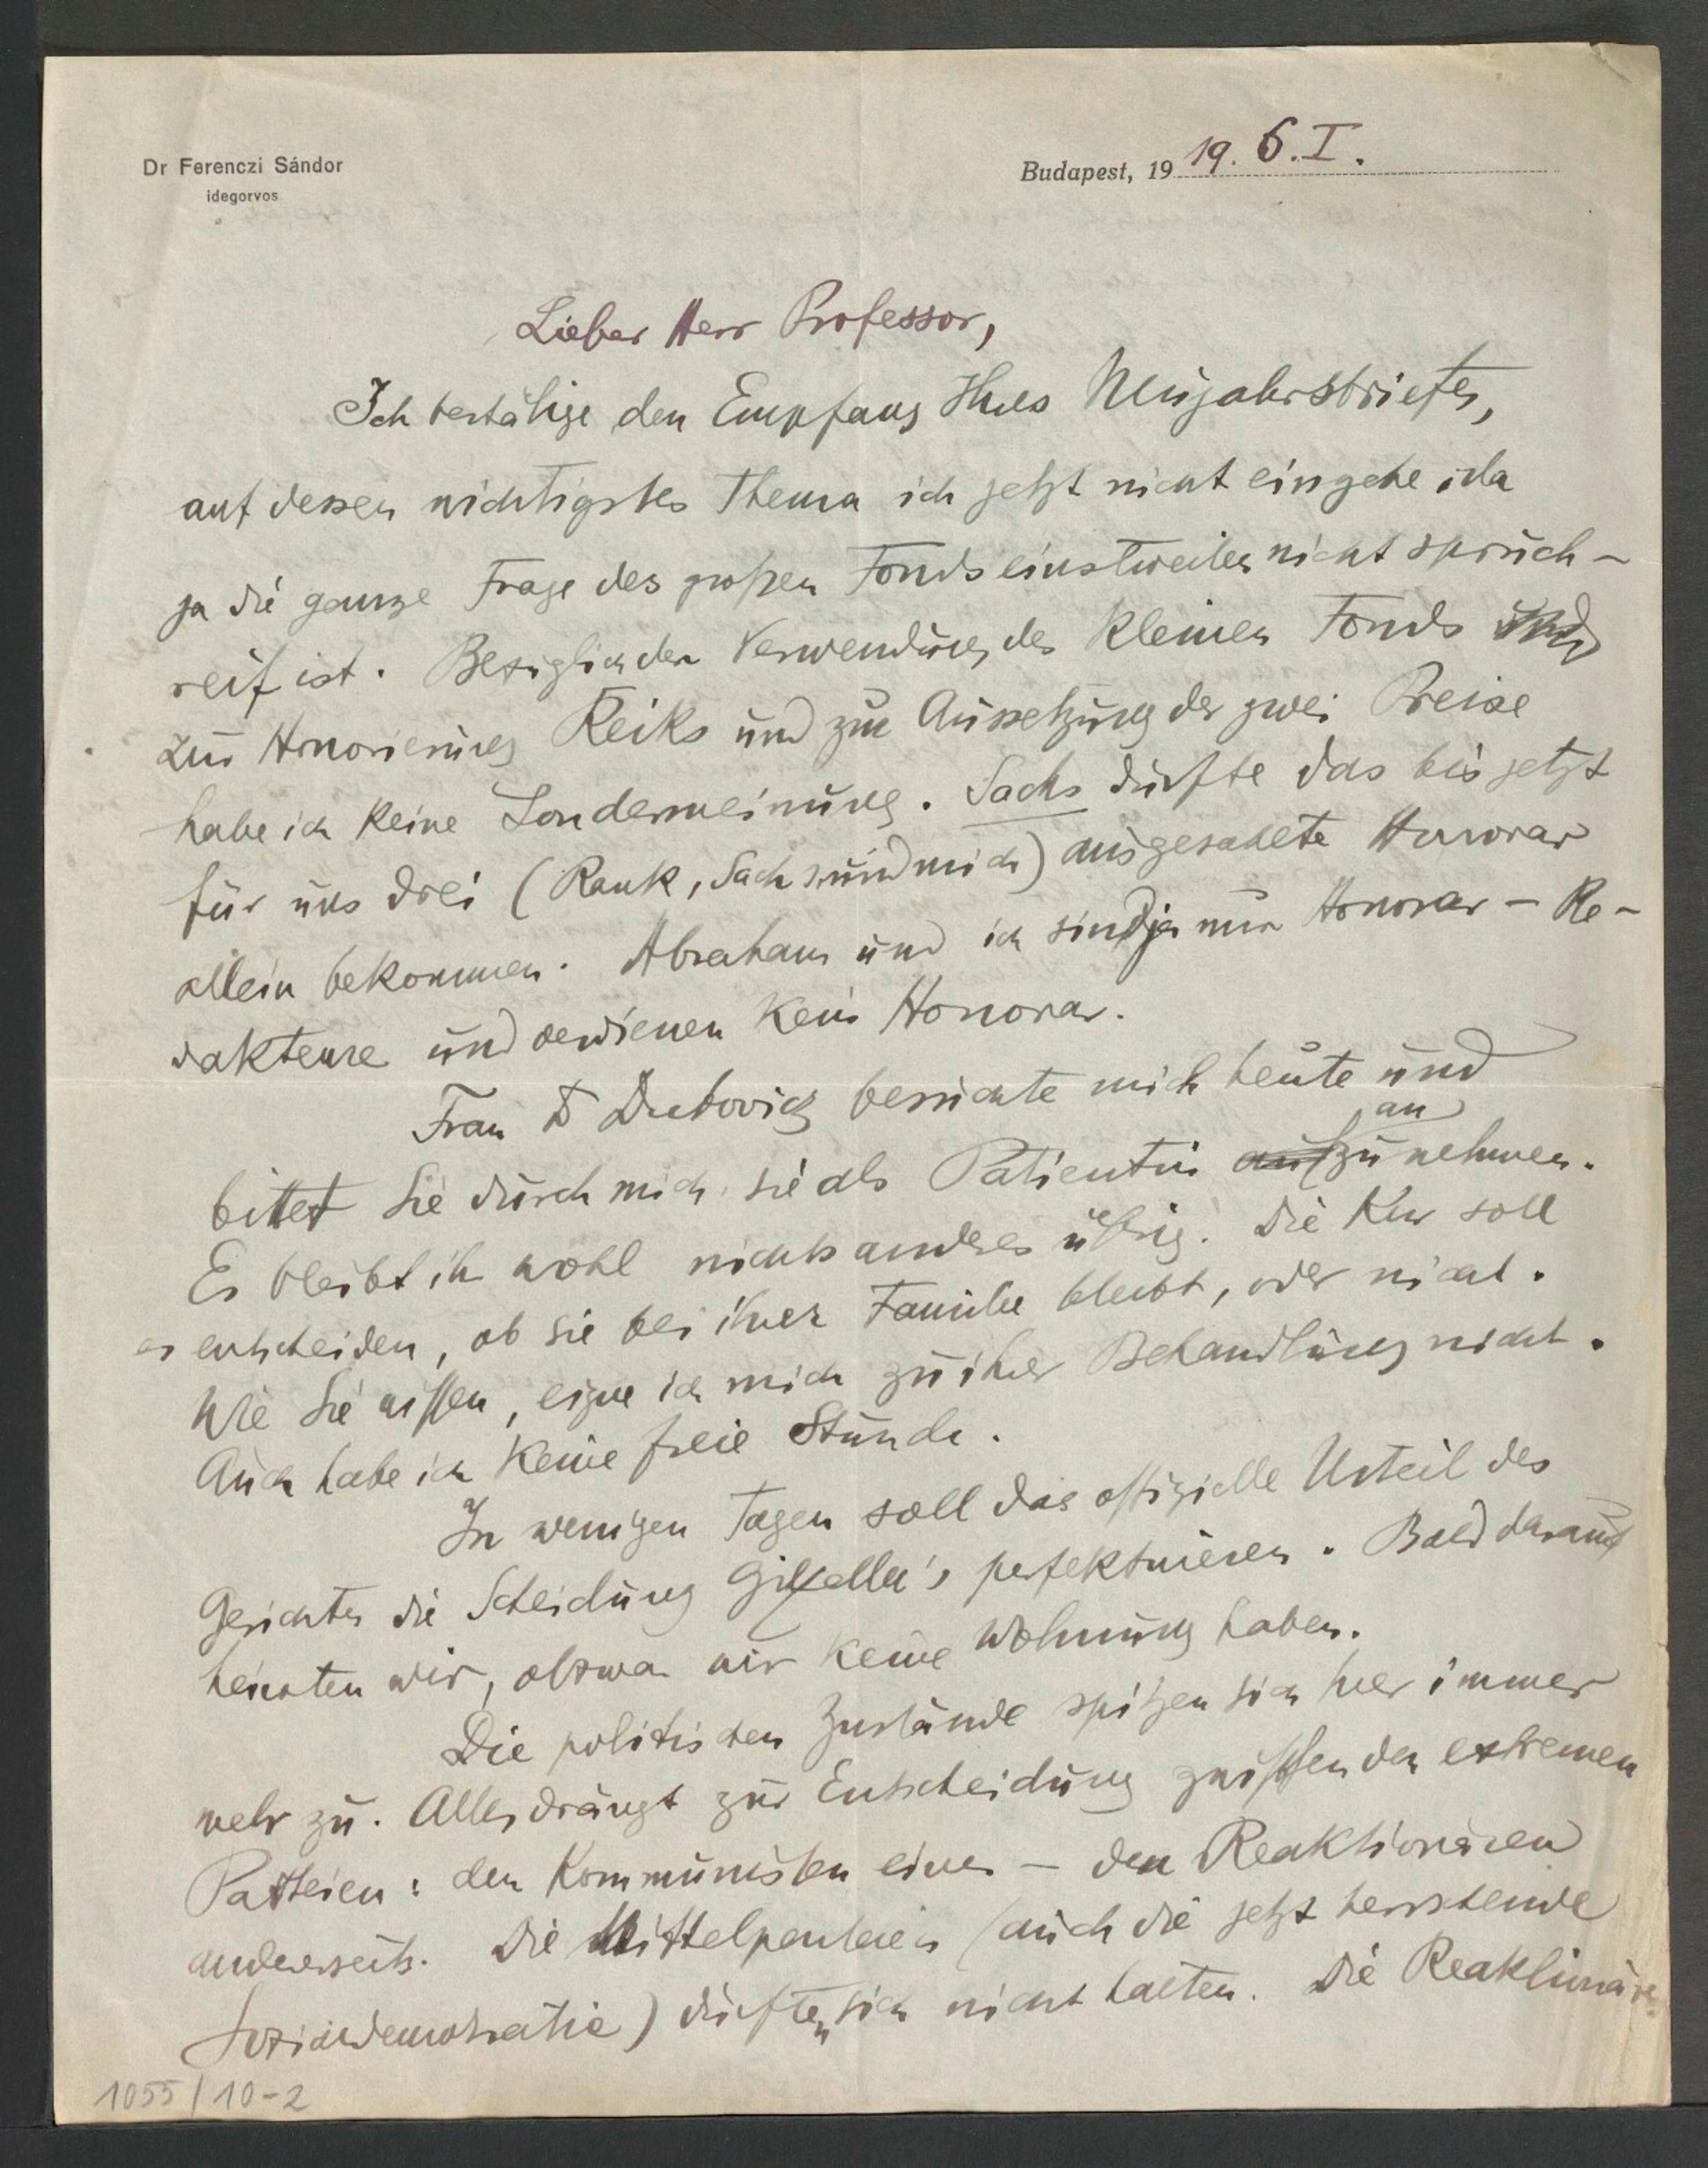 Dr Ferenczi Sándor
idegorvos
Budapest, 19 19. 6. I.
Lieber Herr Professor,
Ich bestätige den Empfang Ihres Neujahrsbriefes,
auf dessen wichtigstes Thema ich jetzt nicht eingehe, da
ja die ganze Frage des großen Fonds einstweilen nicht spruch-
reif ist. Bezüglich der Verwendung des kleinen Fonds
zur Honorierung Reiks und zur Aussetzung der zwei Preise
habe ich keine Sondermeinung. Sachs dürfte das bis jetzt
für uns drei (Rank, Sachs und mich) ausgezahlte Honorar
allein bekommen. Abraham und ich sind ja nur Honorar-Re-
dakteure und verdienen kein Honorar.
Frau Dr Dubovitz besuchte mich heute und
bittet Sie durch mich, sie als Patientin aufzunehmen.
an
Es bleibt ihr wohl nichts anderes übrig. Die Kur soll
es entscheiden, ob sie bei ihrer Familie bleibt, oder nicht.
Wie Sie wissen, eigne ich mich zu ihrer Behandlung nicht.
Auch habe ich keine freie Stunde.
In wenigen Tagen soll das offizielle Urteil des
Gerichtes die Scheidung Gisella's perfektuieren. Bald darauf
heiraten wir, obzwar wir keine Wohnung haben.
Die politischen Zustände spitzen sich hier immer
mehr zu. Alles drängt zur Entscheidung zwischen den extremen
Parteien: den Kommunisten einer- – den Reaktionären
anderseits. Die Mittelparteien (auch die jetzt herrschende
Sozialdemokratie) dürften sich nicht halten. Die Reaktionäre
1055/10-2